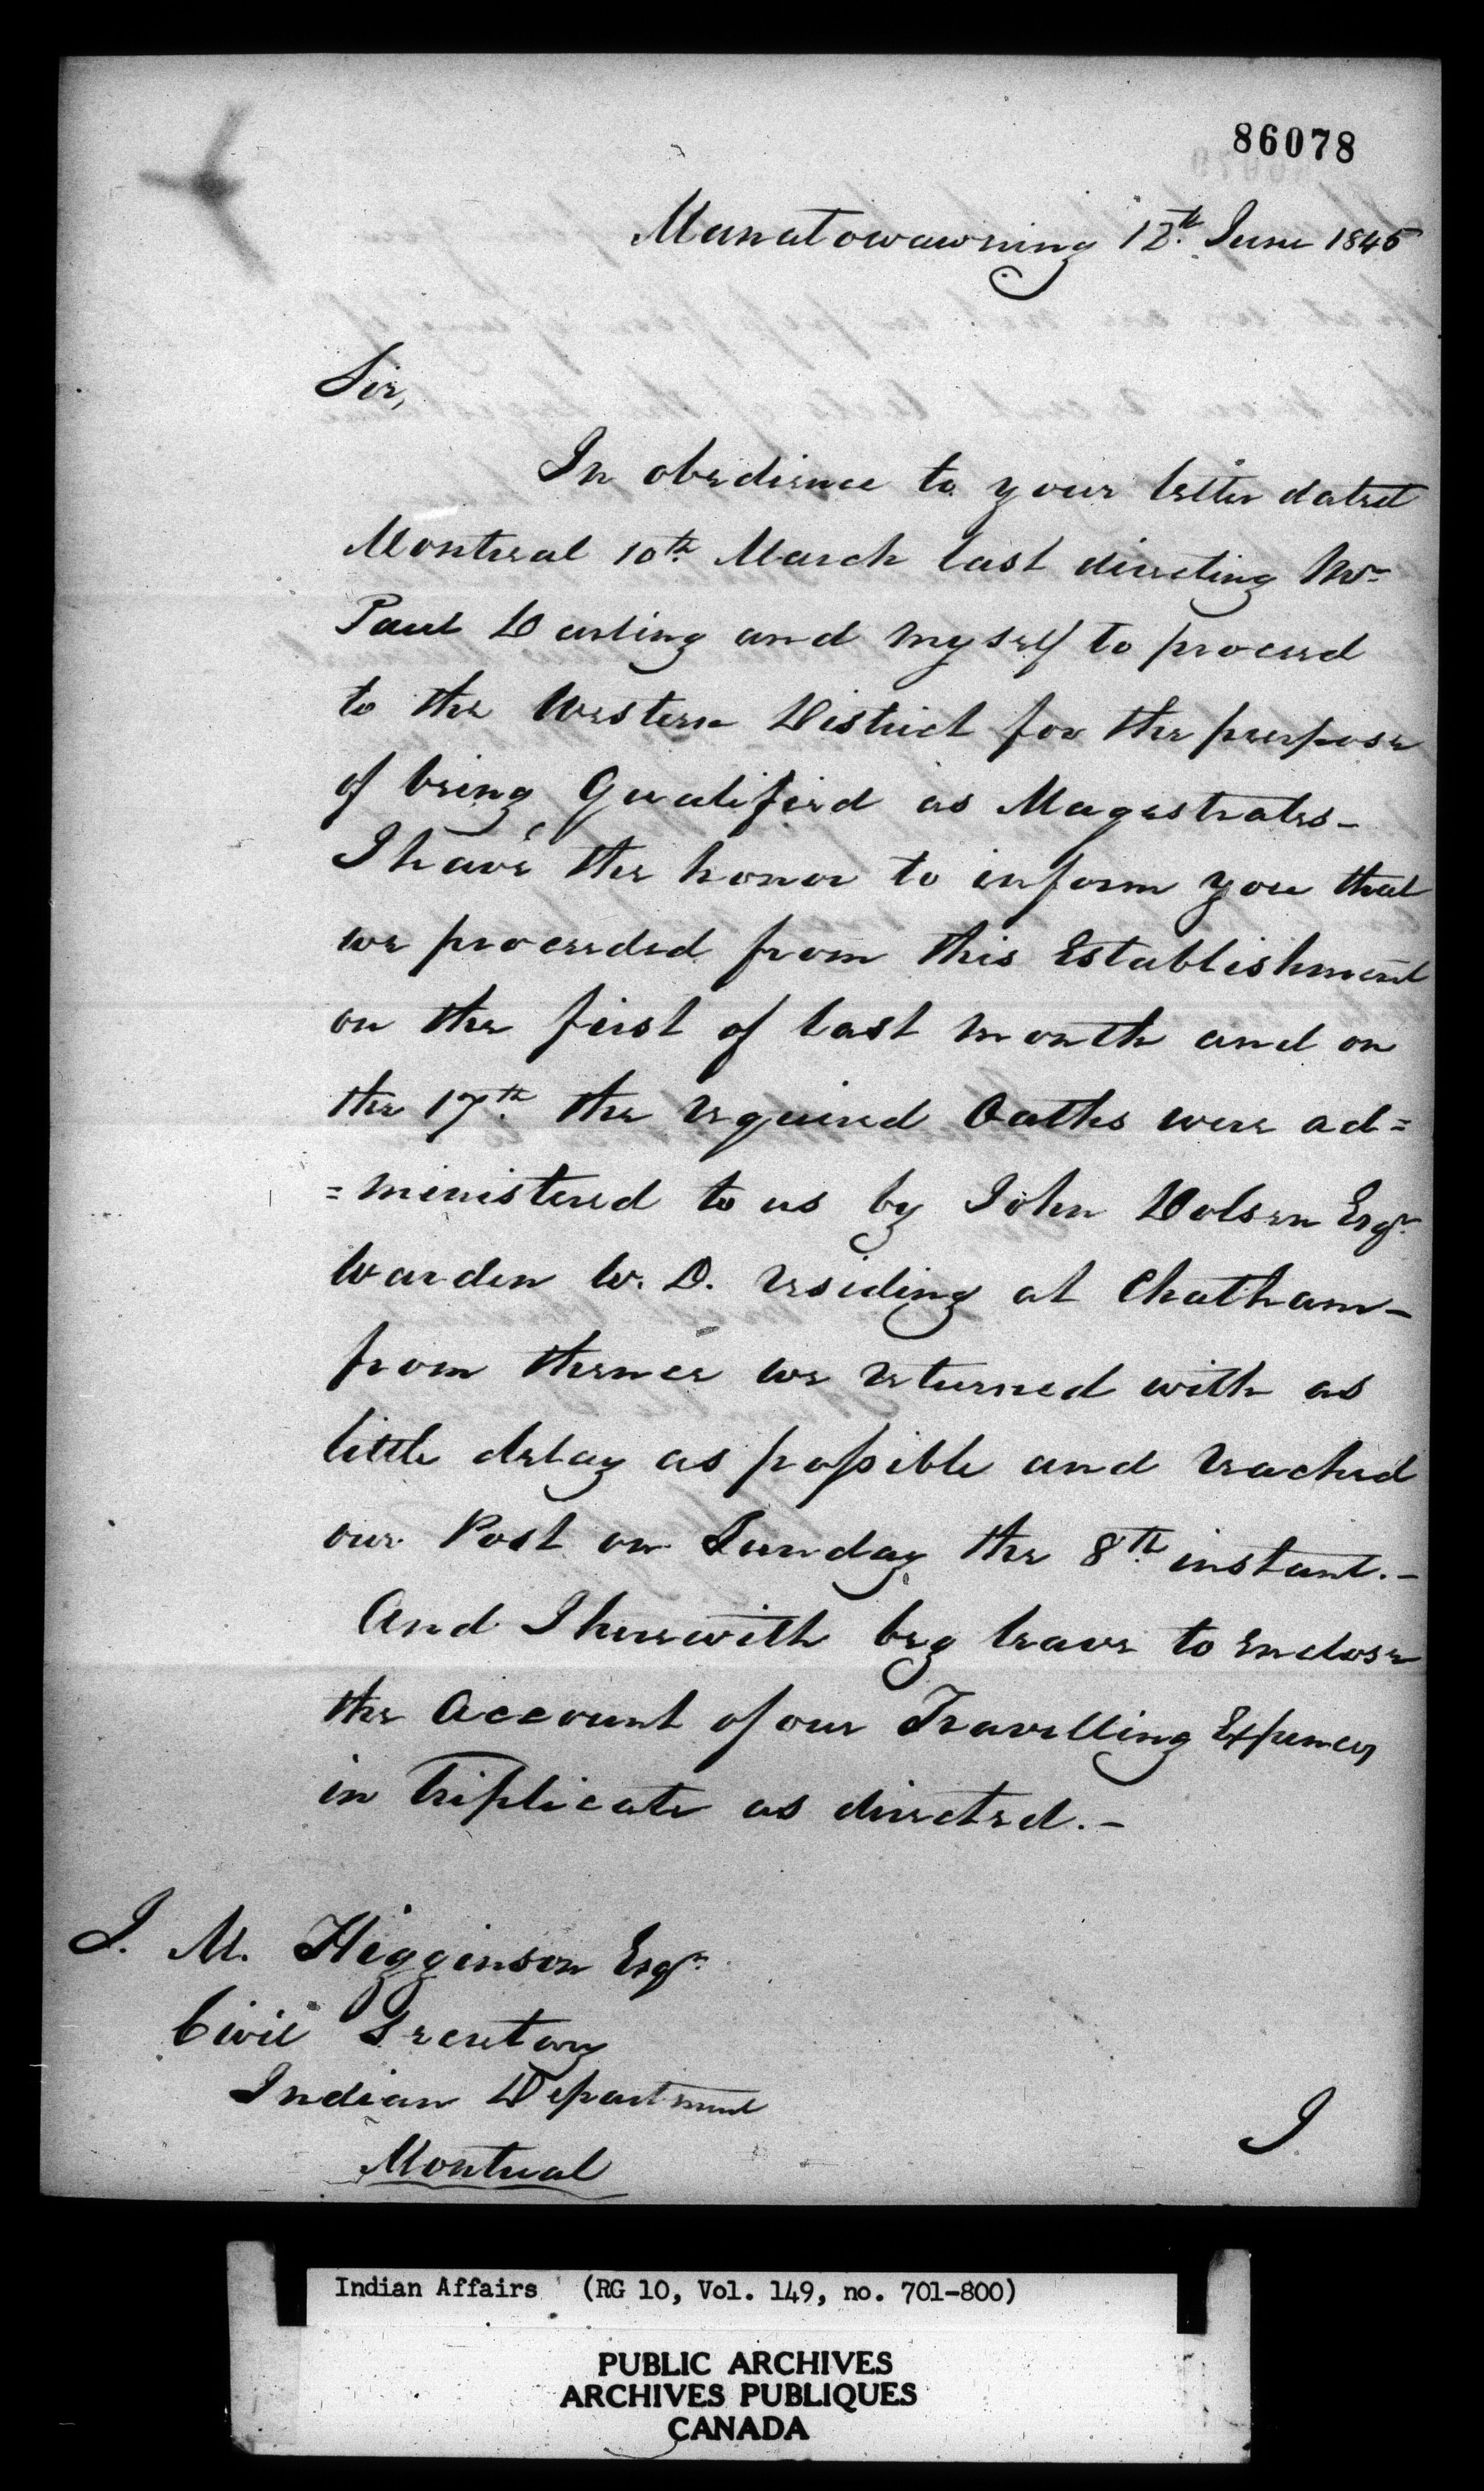 86078
Manatowawning 12th. June 1845
Sir,
In obedience to your letter dated
Montreal 10th. March last directing Mr
Paul Darling and myself to proceed
to the Western District for the purpose
of being Qualified as Magestrates-
I have the honor to inform you that
we proceeded from this Establishment
on the first of last month and on
the 17th. the required Oaths were ad=
=ministered to us by John Dolsen Esqr.
Warden W. D. residing at Chatham-
from thence we returned with as
little delay as possible and reached
our Post on Sunday the 8th. instant.-
And I herewith beg leave to enclose
the Account of our Travelling Expences
in Triplicate as directed.-
J. M. Higginson Esqr.
Civil Secretary
Indian Department
Montreal
I
Indian Affairs (RG 10, Vol. 149, no. 701-800)
PUBLIC ARCHIVES
ARCHIVES PUBLIQUES
CANADA